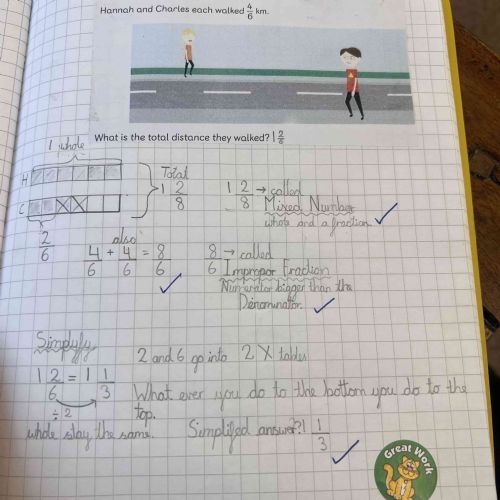 Hannah and Charles each walked 4/6 km.
What is the total distance they walked? 1 2/6
1 whole
H
C
Total
1 2/8
1 2/8 → called
Mixed Number
whole and a fraction.
2/6
also
4/6 + 4/6 = 8/6
8/6 → called
Impropor Fraction
Numerator bigger than the
Denominator.
Simplyfy
1 2/6 = 1 1/3
÷2
2 and 6 go into 2 X tables
What ever you do to the bottom you do to the
top.
whole stay the same.
Simplifed answer?! 1/3
Great Work